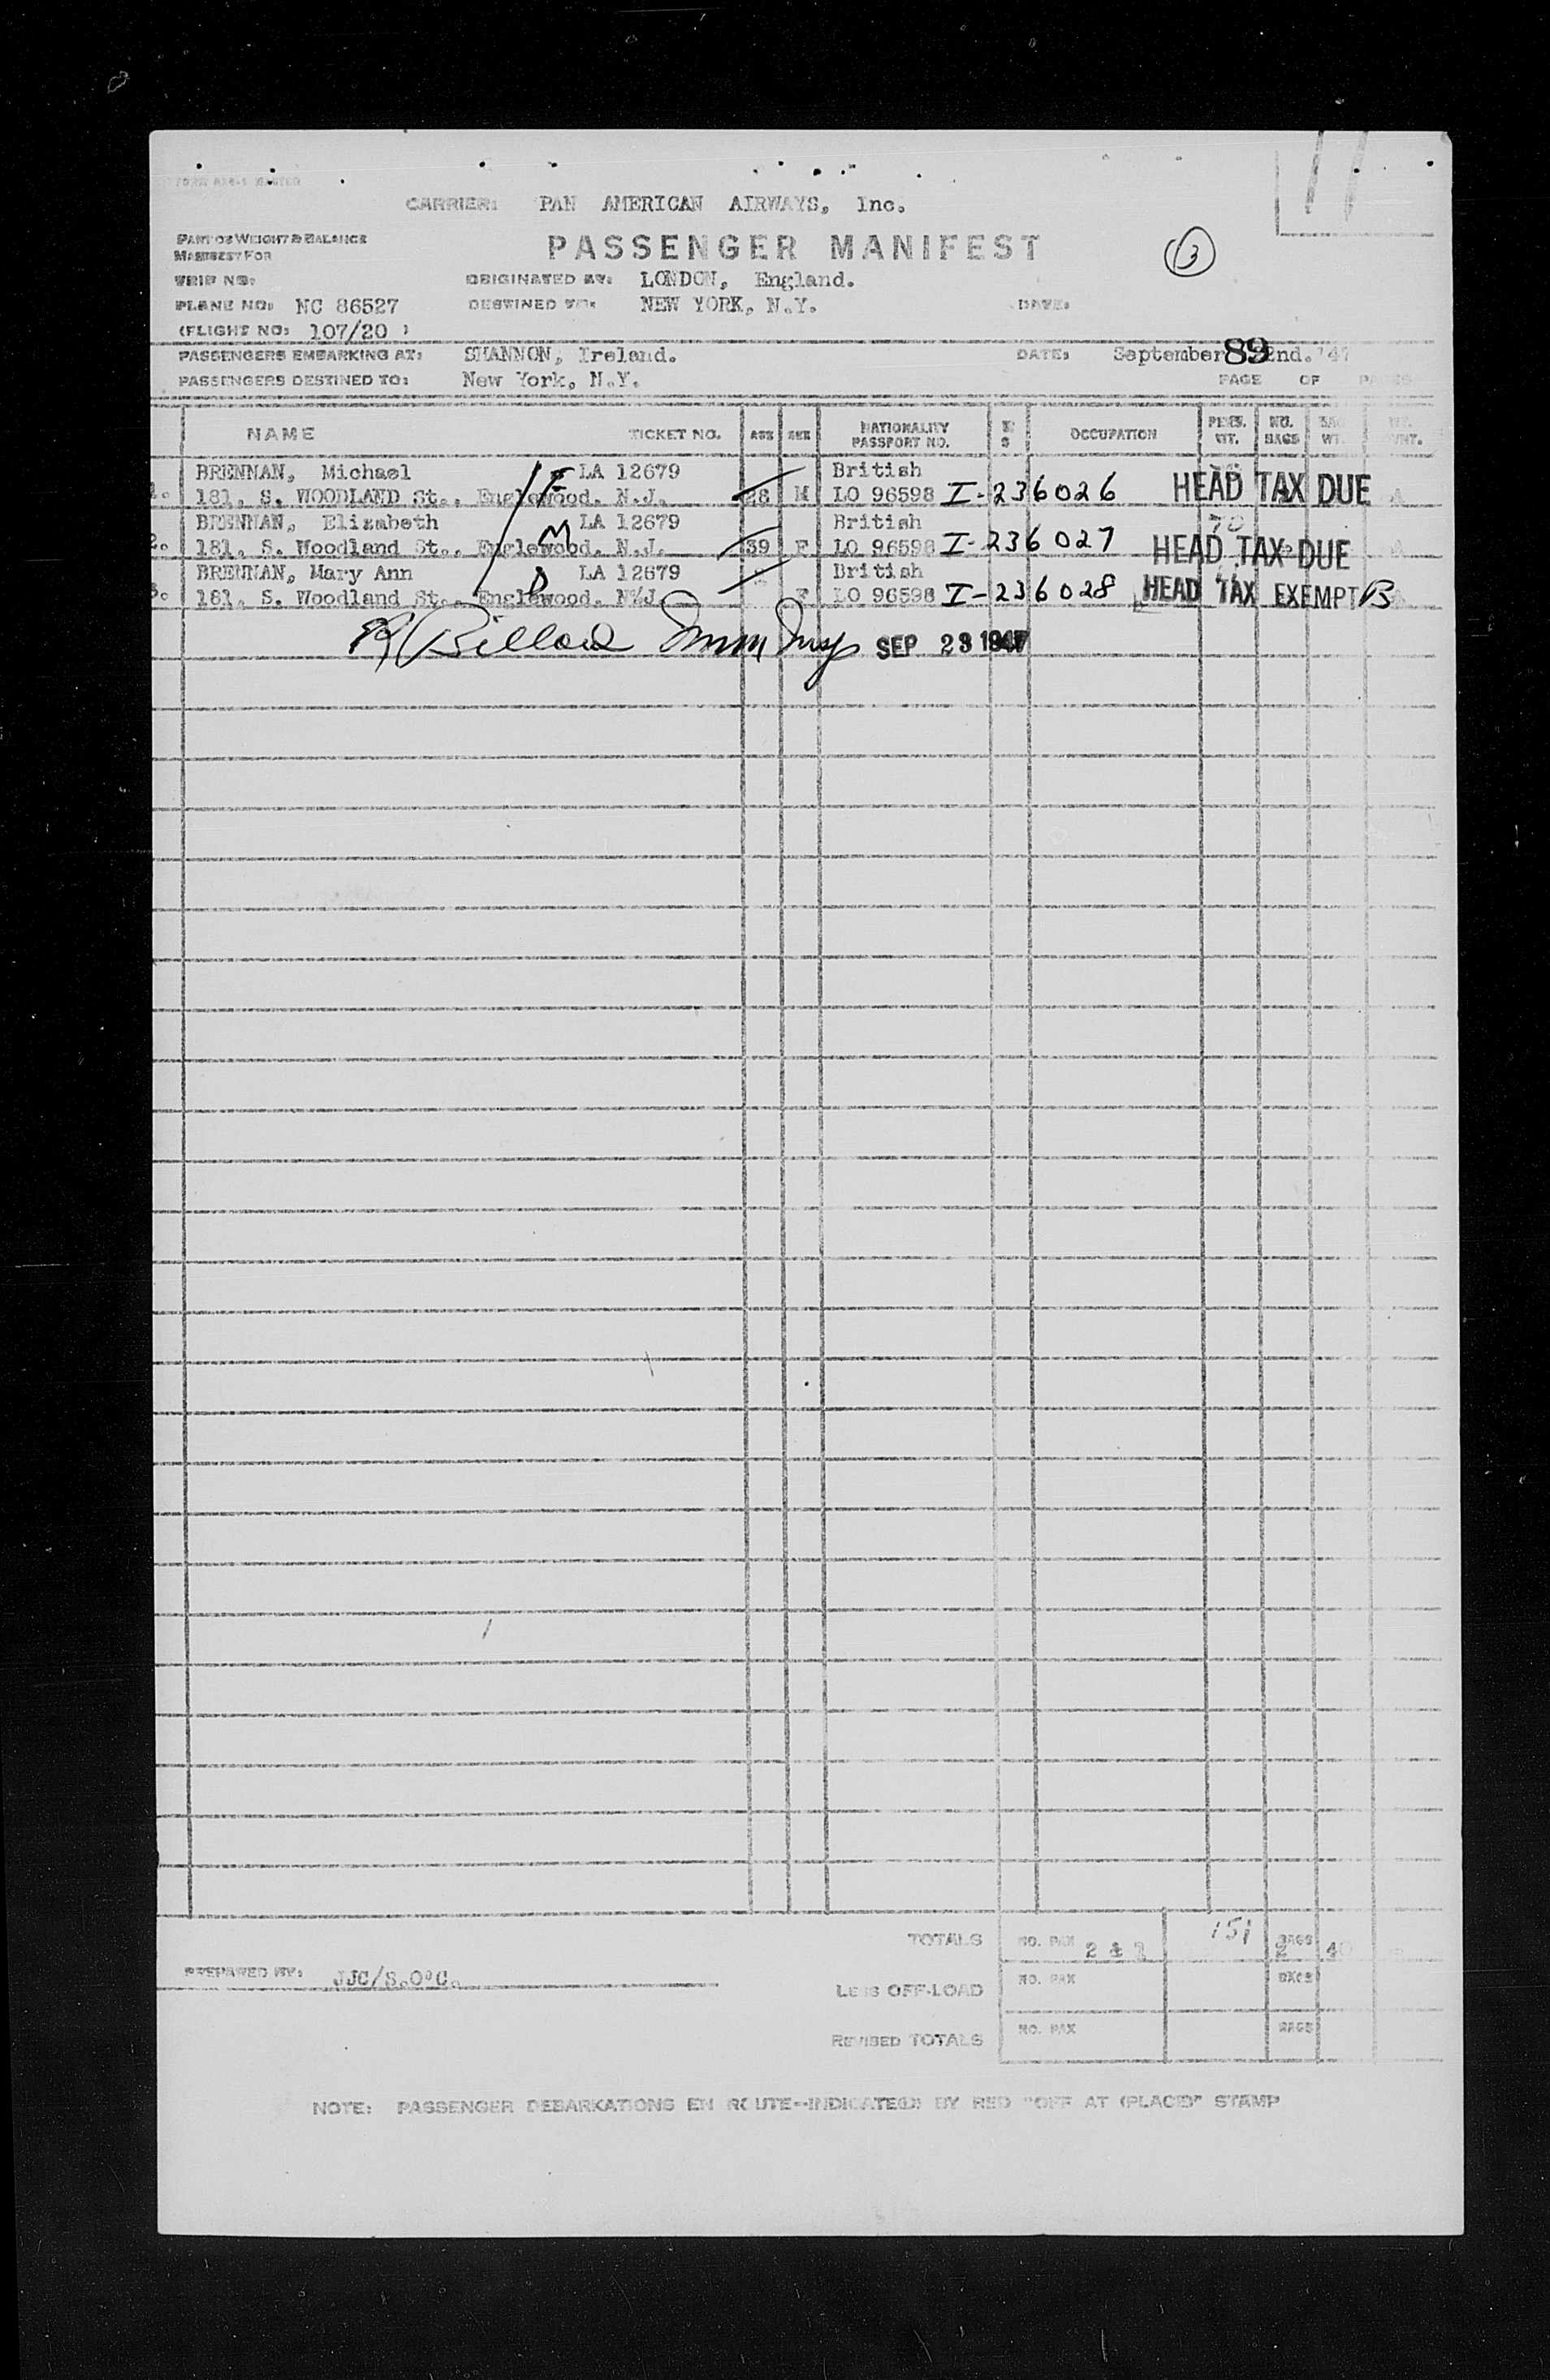 FORM
CARRIER: PAN AMERICAN AIRWAYS, Inc.
PART OF WEIGHT & BALANCE
MANIFEST FOR
PASSENGER MANIFEST
3
TRIP NO:
ORIGINATED AT: LONDON, England.
PLANE NO: NC 86527
DESTINED TO: NEW YORK, N.Y.
DATE:
(FLIGHT NO: 107/20 )
PASSENGERS EMBARKING AT: SHANNON, Ireland.
DATE: September 22nd. '47
89
PASSENGERS DESTINED TO: New York, N.Y.
PAGE OF PAGES
NAME TICKET NO. AGE SEX NATIONALITY PASSPORT NO. OCCUPATION PERS. WT. NO. BAGS BAG WT.
BRENNAN, Michael F LA 12679 British
1. 181, S. WOODLAND St., Englewood, N.J. M LO 96598 I-236026 HEAD TAX DUE
BRENNAN, Elizabeth LA 12679 British
2. 181, S. Woodland St., Englewood, N.J. M 39 F LO 96598 I-236027 HEAD TAX DUE
BRENNAN, Mary Ann LA 12679 British
3. 181, S. Woodland St., Englewood, N.J. D F LO 96598 I-236028 HEAD TAX EXEMPT B
Billard Imm Insp SEP 23 1947
TOTALS NO. PAX 2 & 1 151 BAGS 2 40
PREPARED BY: JJC/S.O'C.
LESS OFF-LOAD NO. PAX BAGS
REVISED TOTALS NO. PAX BAGS
NOTE: PASSENGER DEBARKATIONS EN ROUTE--INDICATE(D) BY RED "OFF AT (PLACE)" STAMP